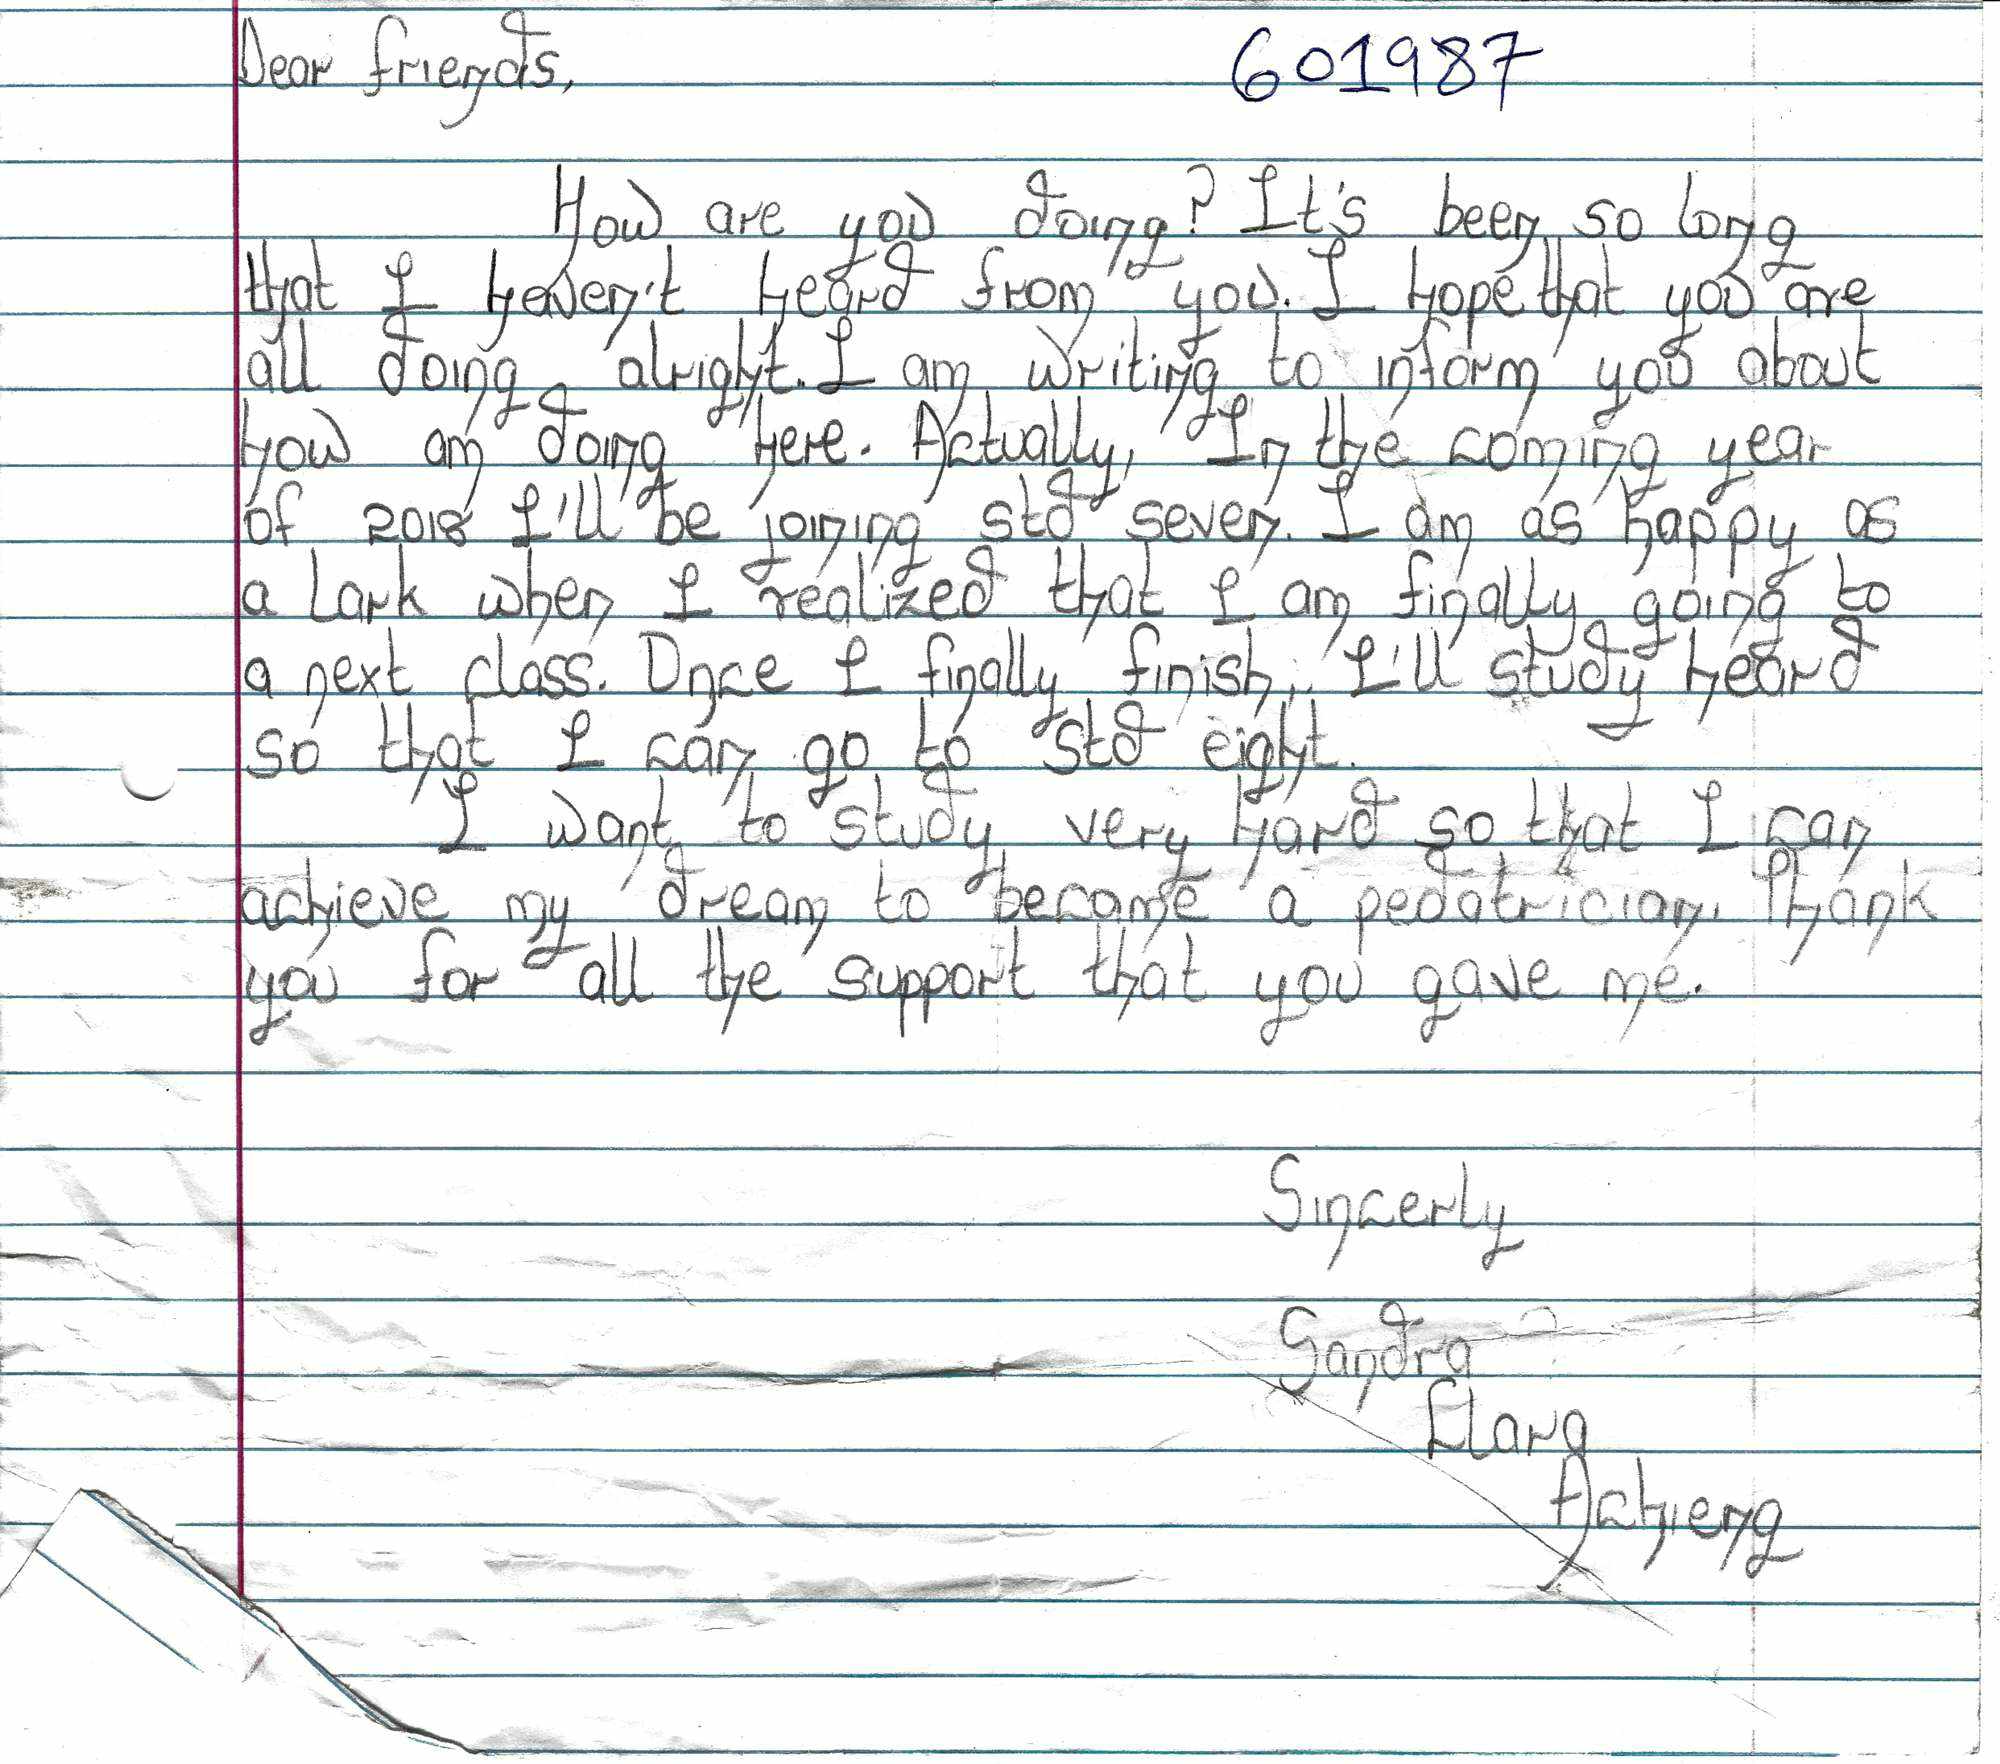 Dear friends, 601987
How are you doing? It's been so long
that I haven't heard from you. I hope that you are
all doing alright. I am writing to inform you about
how am doing here. Actually, In the coming year
of 2018 I'll be joining std seven. I am as happy as
a lark when I realized that I am finally going to
a next class. Once I finally finish, I'll study heard
so that I can go to std eight.
I want to study very hard so that I can
achieve my dream to became a pedatrician. Thank
you for all the support that you gave me.
Sincerly
Sandra
Clara
Achieng